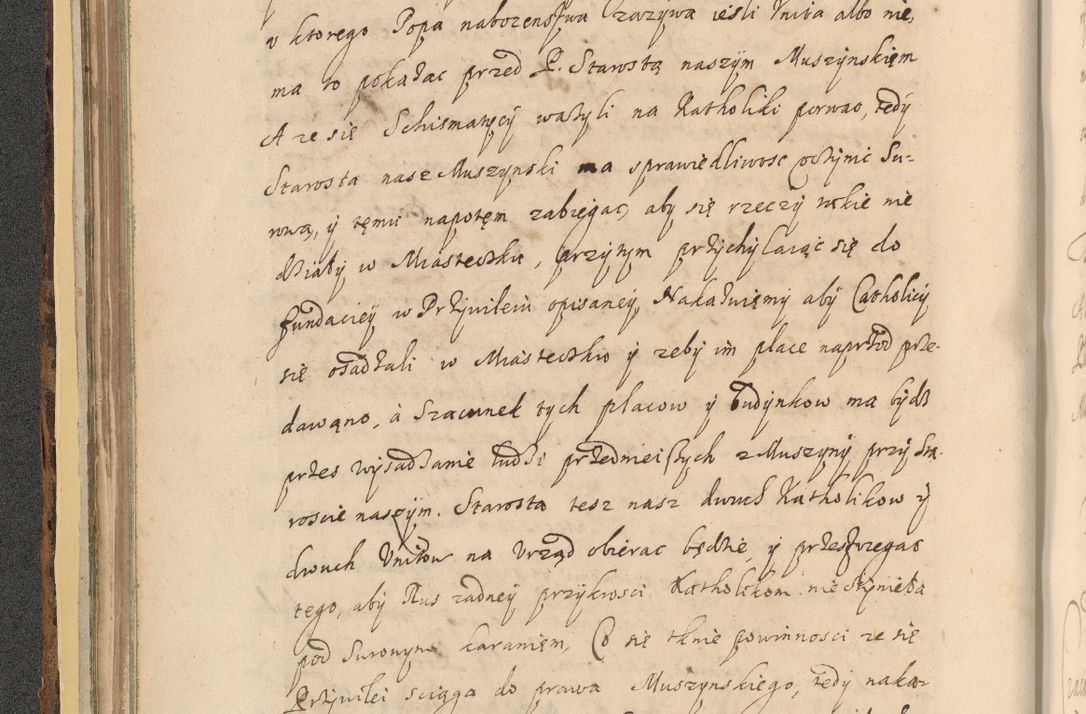 v ktorego Popa nabozenstwa zazywa iesli Vnita albo nie,
ma to pokazac przed P. Starostą naszym Muszynskięm
A ze się Schismatycy wazyli na Katholiki porwac, tedy
Starosta nasz Muszynski ma sprawiedliwosc vczynic Su-
rową, y temu napotęm zabiegac, aby się rzeczy takie nie
działy w Miasteczku, przytym przychylaiąc się do
fundaciey w Przywileiu opisaney, Nakazuięmy aby Catholicy
się osadzali w Miasteczku y zeby im place naprzod prze-
dawano, á Szacunek tych placow y budynkow ma bydz
przez wysadzanie ludzi przedmieiszych z Muszyny przy Sta-
roscie naszym. Starosta tesz nasz dwuch Katholikow y
dwuch Vnitow na Vrząd obierac będzie y przestrzegac
tego, aby Rus zadney przykrosci Katholikom nie czyniełá
pod surowym karanięm, Co się tknie powinnosci ze się
Przywilei sciąga do prawa Muszynskiego, tedy naka-